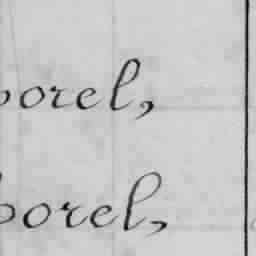 borel,
borel,